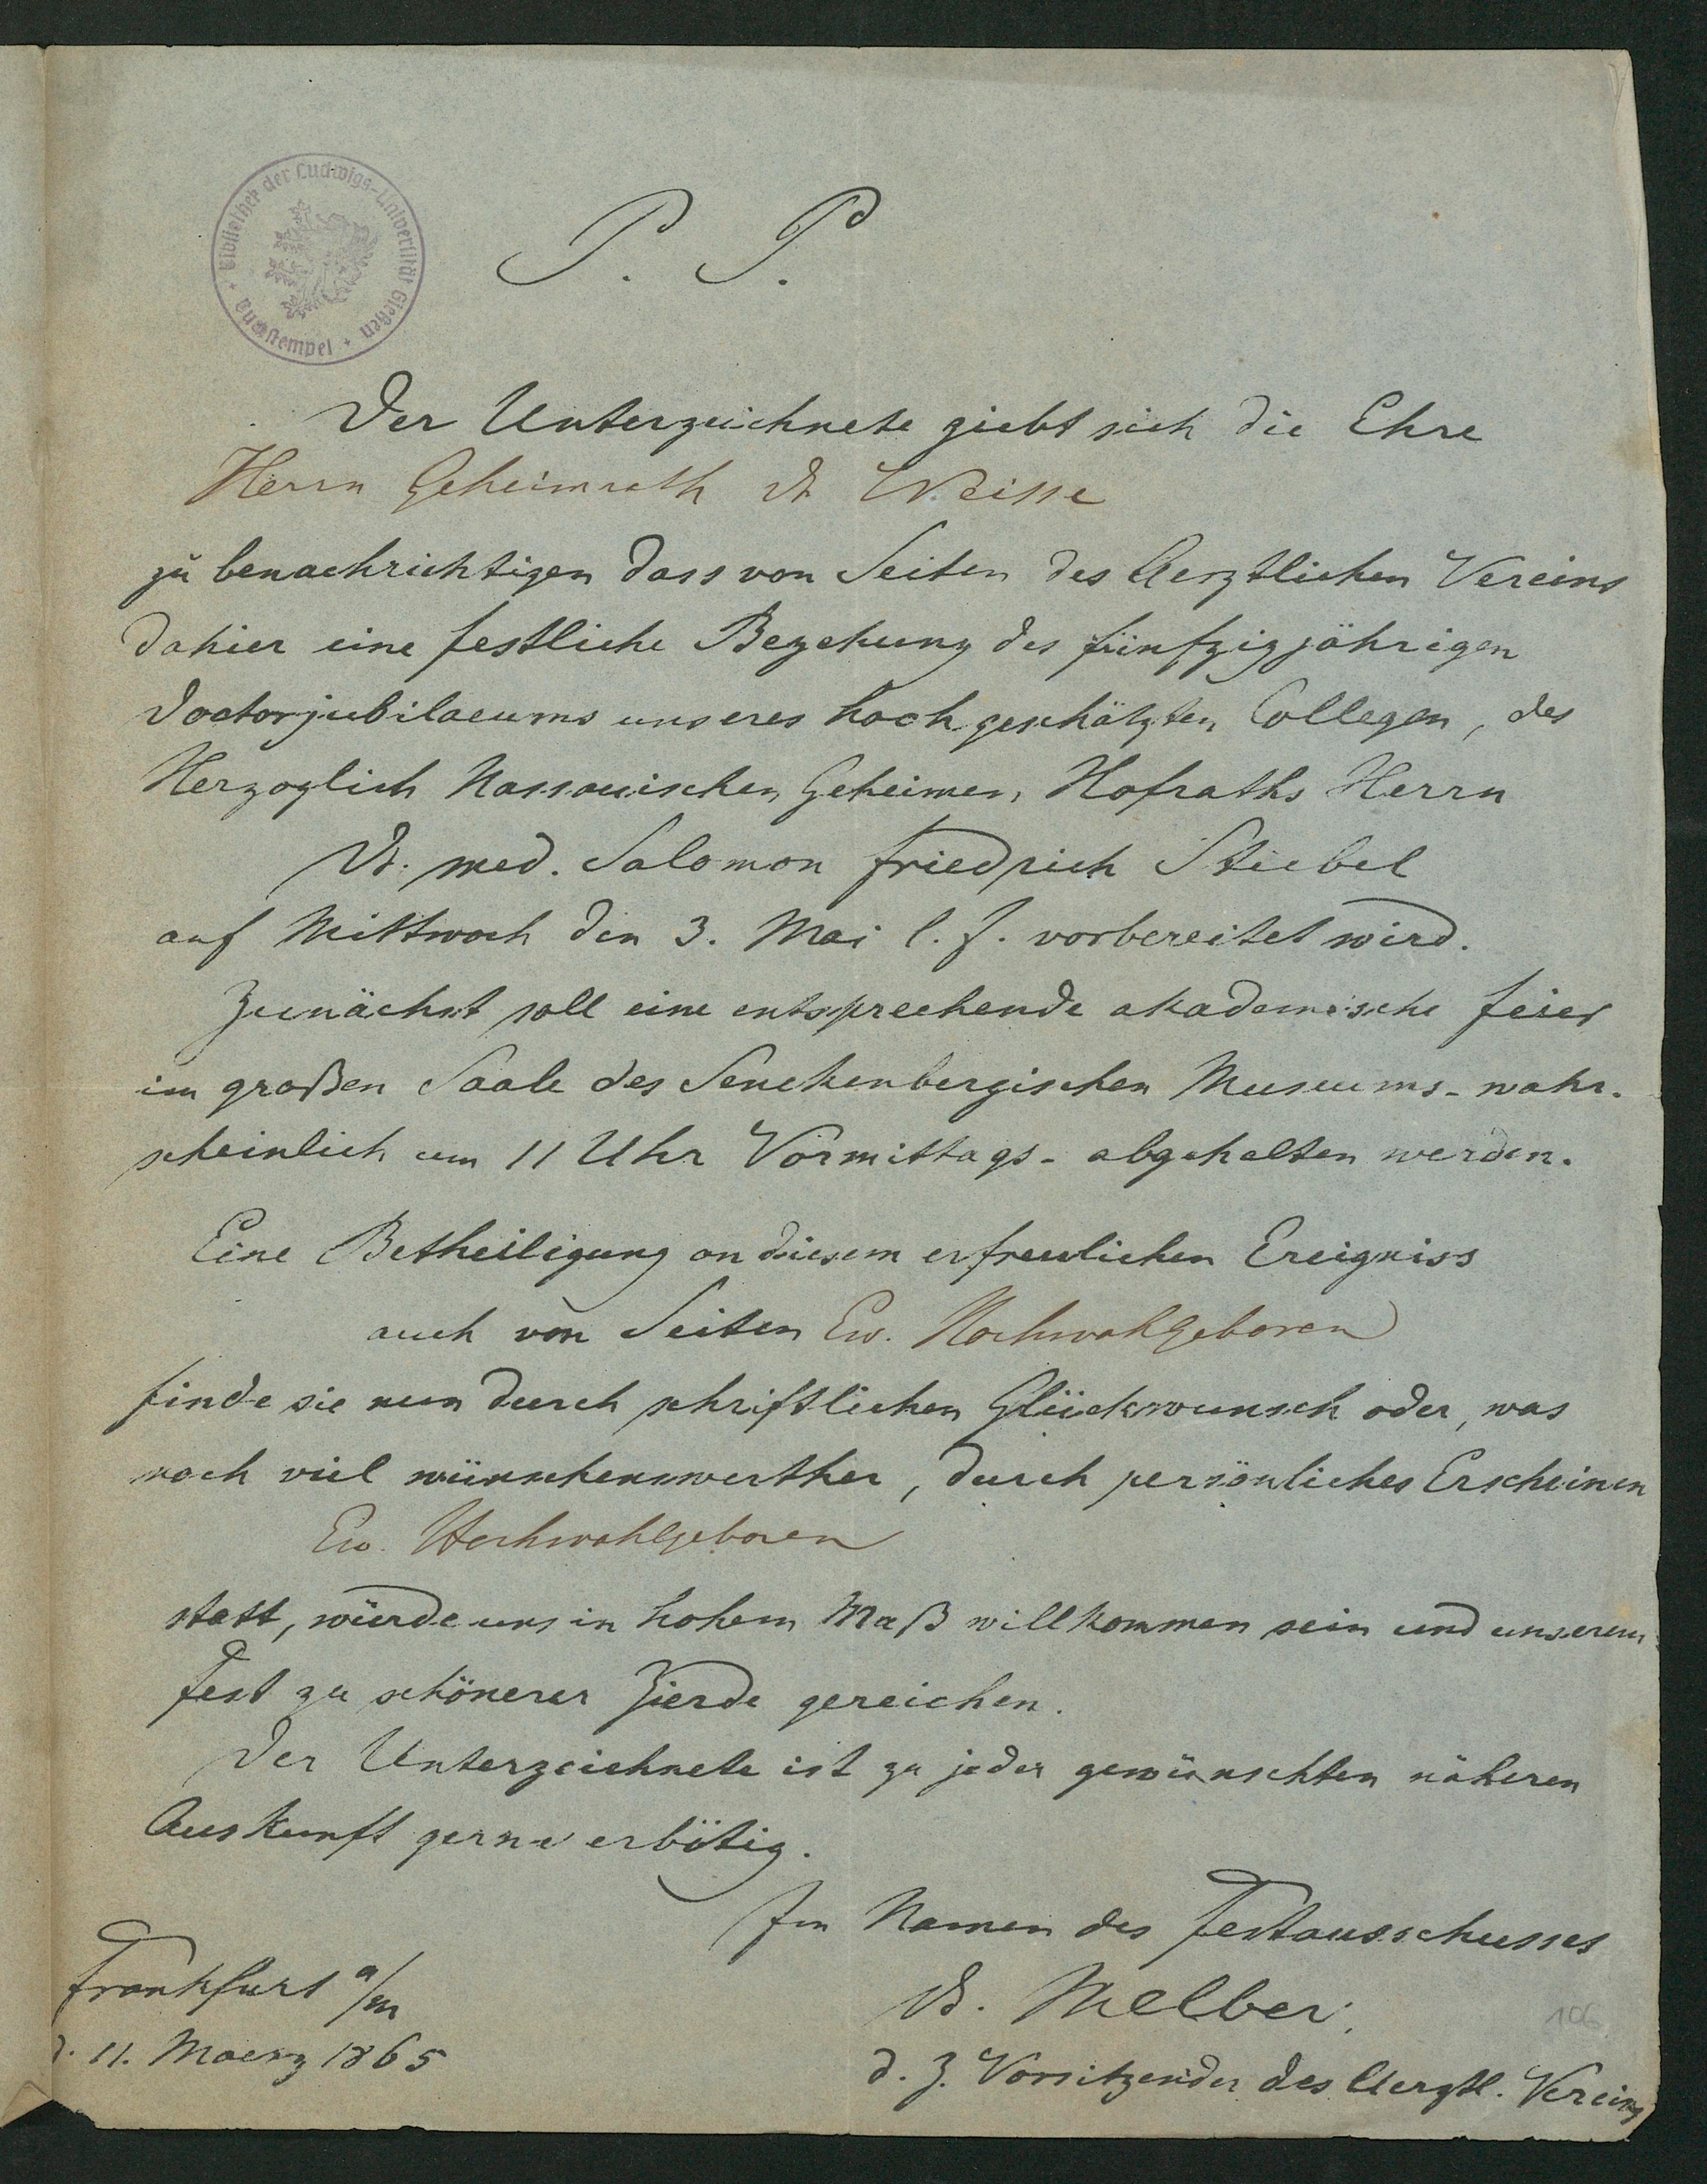 Bibliothek der Ludwigs-Universität Gießen
Buchstempel
P. P.
Der Unterzeichnete giebt sich die Ehre
Herrn Geheimrath Dr Weisse
zu benachrichtigen dass von Seiten des Aerztlichen Vereins
dahier eine festliche Begehung des fünfzigjährigen
Doctorjubilaeums unseres hochgeschätzten Collegen, des
Herzoglich Nassauischen Geheimen Hofraths Herrn
Dr. med. Salomon Friedrich Stiebel
auf Mittwoch den 3. Mai l. J. vorbereitet wird.
Zunächst soll eine entsprechende akademische Feier
im großen Saale des Senckenbergischen Museums - wahr-
scheinlich um 11 Uhr Vormittags - abgehalten werden.
Eine Betheiligung an diesem erfreulichen Ereigniss
auch von Seiten Ew. Hochwohlgeboren
finde sie nun durch schriftlichen Glückwunsch oder, was
noch viel wünschenswerther, durch persönliches Erscheinen
Ew. Hochwohlgeboren
statt, würde uns in hohem Maß willkommen sein und unserem
Fest zu schönerer Zierde gereichen.
Der Unterzeichnete ist zu jeder gewünschten näheren
Auskunft gerne erbötig.
Im Namen des Festausschusses
Frankfurt a/m
Dr. Melber.
106
d. 11. Maerz 1865
d. Z. Vorsitzender des Aerztl. Vereins